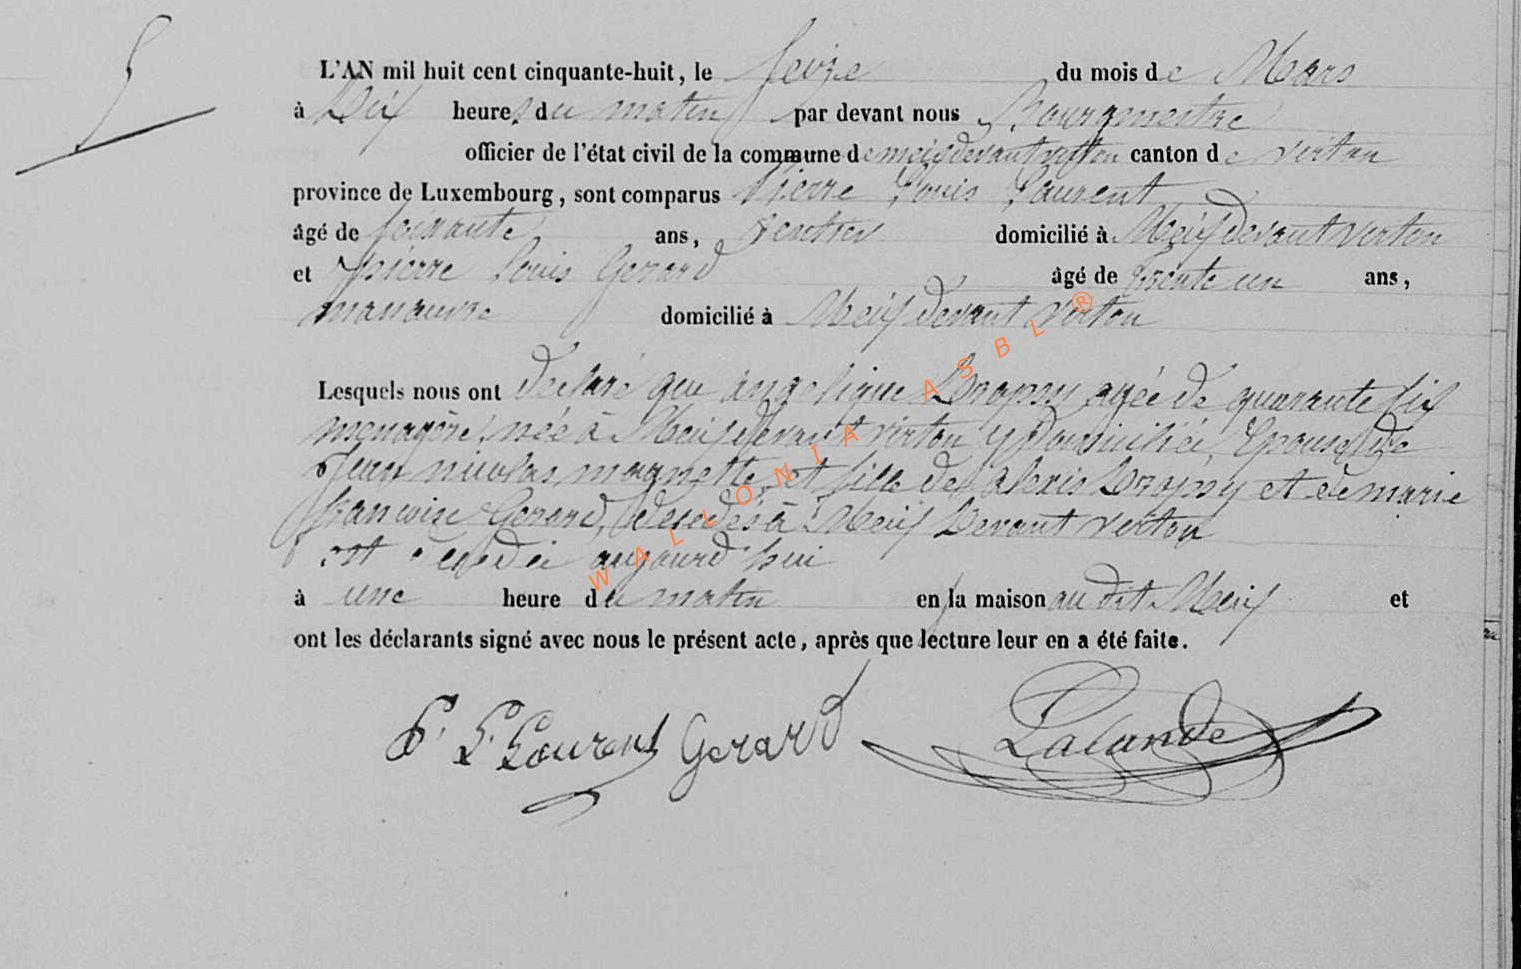 L'AN mil huit cent cinquante-huit, le Seize du mois de Mars
à Dix heures du matin par devant nous Bourgmestre
officier de l'état civil de la commune de meix devant virton canton de virton
province de Luxembourg, sont comparus Pierre Louis Laurent
âgé de soixante ans, rentier domicilié à Meix devant virton
et pierre Louis Gerard âgé de trente un ans,
manœuvre domicilié à Meix devant virton
Lesquels nous ont declaré que angelique Dropsy agée de quarante six
menagère, née à Meix devant virton y domiciliée, Epouse de
Jean nicolas magnette, et fille de alexis Dropsy et de marie
francoise Gerard, decedés à Meix Devant virton
est decedée aujourd'hui
à une heure du matin en la maison au dit Meix et
ont les déclarants signé avec nous le présent acte, après que lecture leur en a été faite.
P. L. Laurent Gerard Lalande
WALLONIA ASBL ®